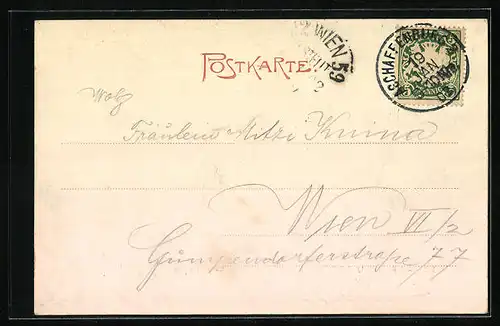 WIEN 59
POSTKARTE
ASCHAFFENBURG 2
Fräulein Mitzi Knina
Wien VI/2
Gumpendorferstraße 77